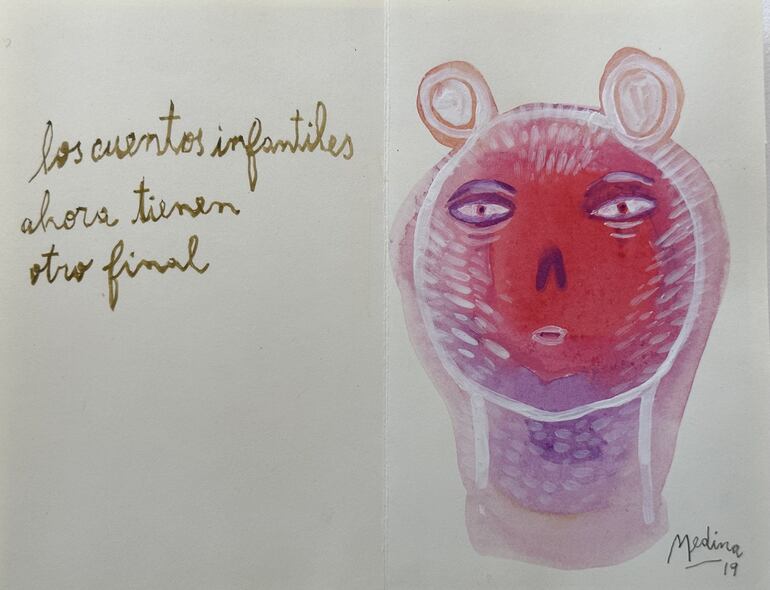 los cuentos infantiles
ahora tienen
otro final
Medina
19